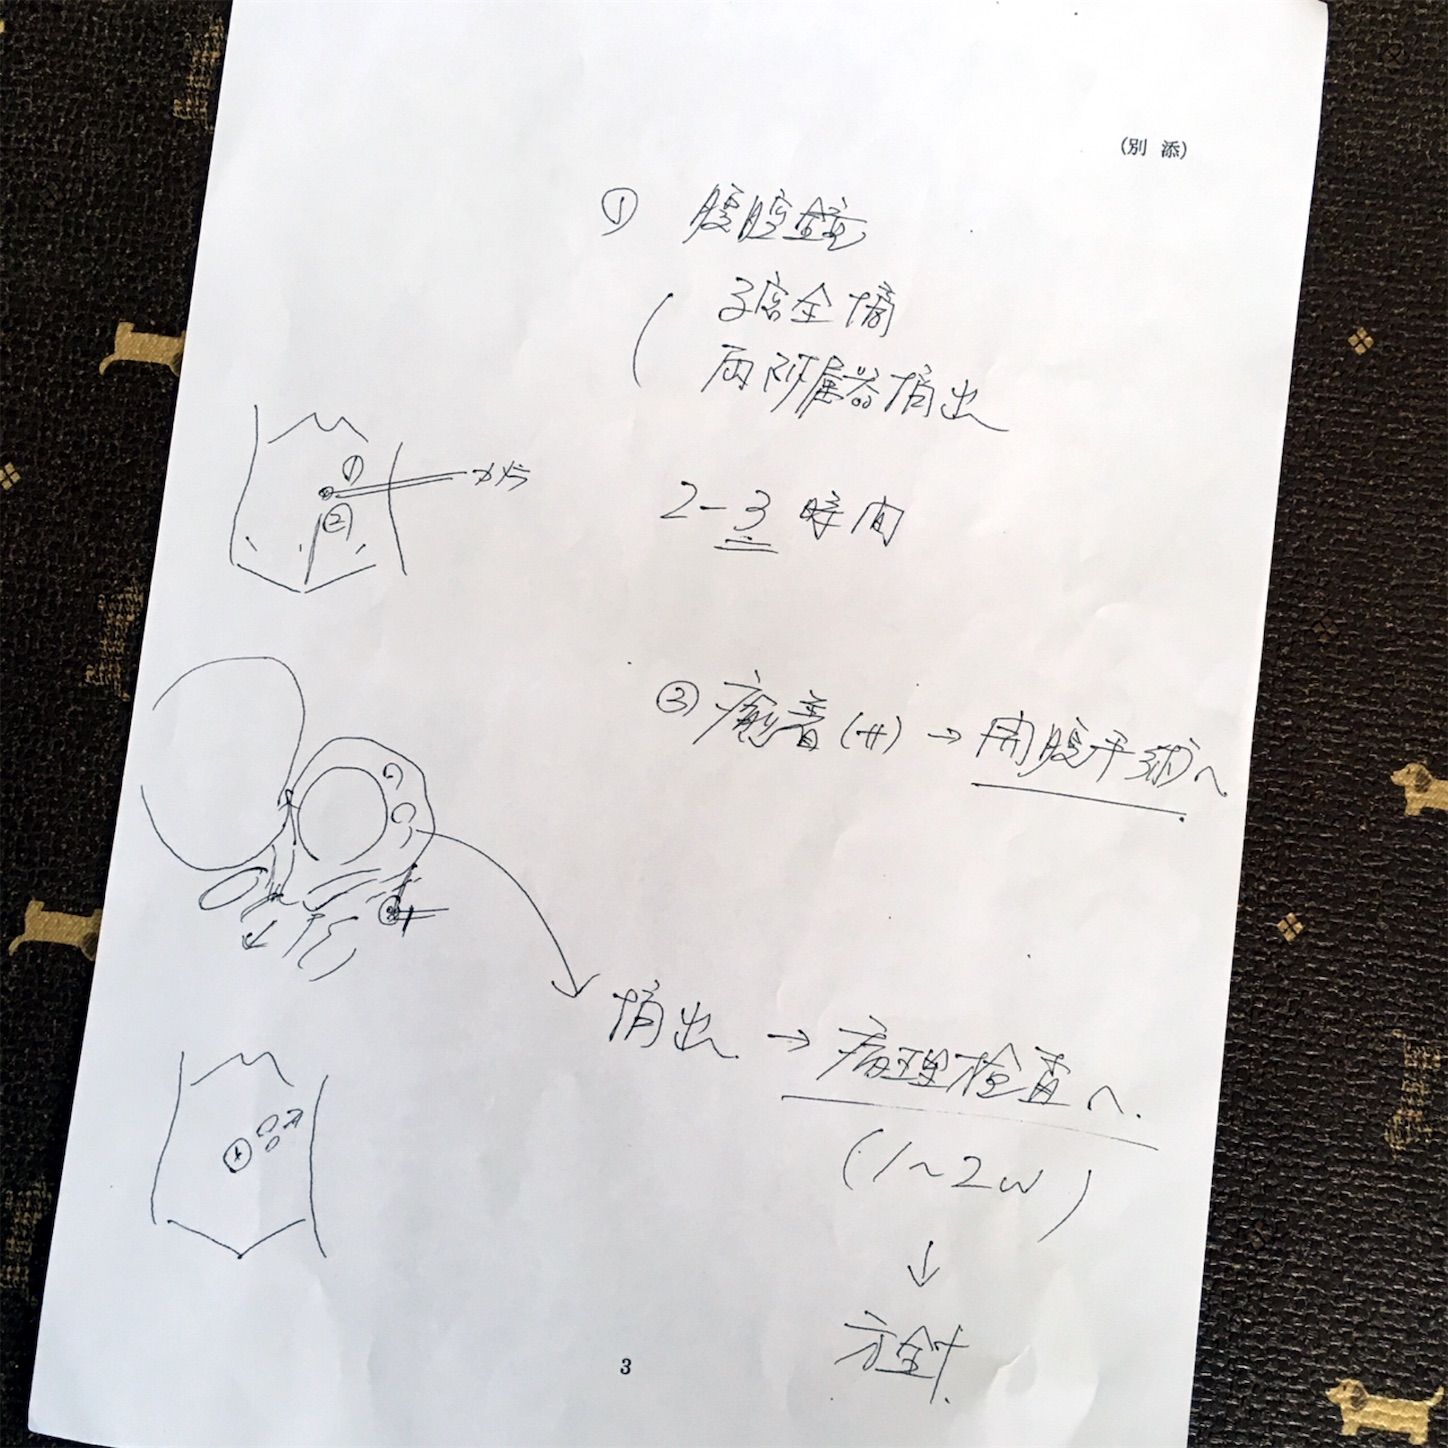 (別 添)
① 腹腔鏡
子宮全摘
両附属器摘出
①
カメラ
②
2-3 時間
② 癒着(+) → 開腹手術へ
摘出 → 病理検査へ.
(1~2w)
↓
方針.
3